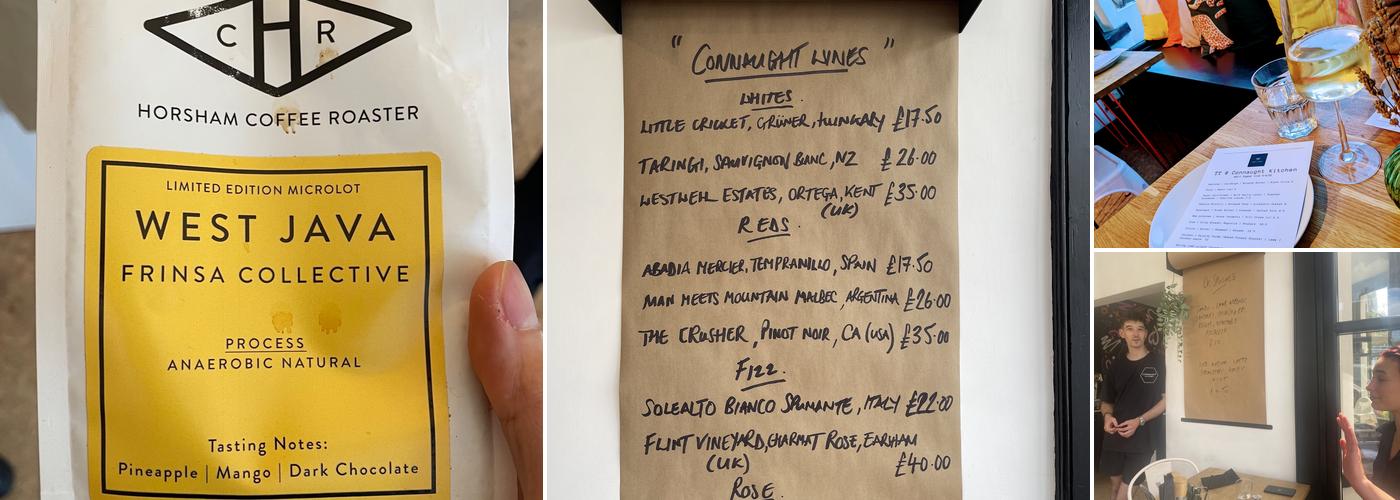 C H R
HORSHAM COFFEE ROASTER
LIMITED EDITION MICROLOT
WEST JAVA
FRINSA COLLECTIVE
PROCESS
ANAEROBIC NATURAL
Tasting Notes:
Pineapple | Mango | Dark Chocolate
"CONNAUGHT WINES"
WHITES.
LITTLE CRICKET, GRÜNER, HUNGARY £17.50
TARINGI, SAUVIGNON BLANC, NZ £26.00
WESTWELL ESTATES, ORTEGA, KENT £35.00
(UK)
REDS.
ABADIA MERCIER, TEMPRANILLO, SPAIN £17.50
MAN MEETS MOUNTAIN MALBEC, ARGENTINA £26.00
THE CRUSHER, PINOT NOIR, CA (USA) £35.00
FIZZ.
SOLEALTO BIANCO SPUMANTE, ITALY £22.00
FLINT VINEYARD, CHARMAT ROSE, EARSHAM
(UK) £40.00
ROSE.
TT @ Connaught Kitchen